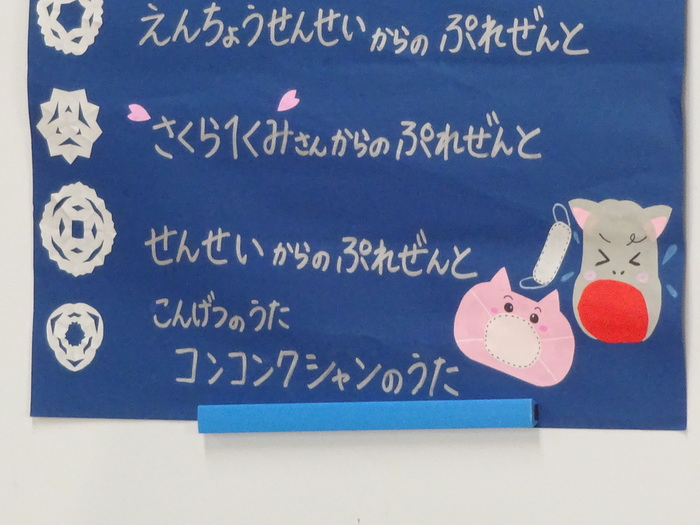 えんちょうせんせいからのぷれぜんと
さくら1くみさんからのぷれぜんと
せんせいからのぷれぜんと
こんげつのうた
コンコンクシャンのうた